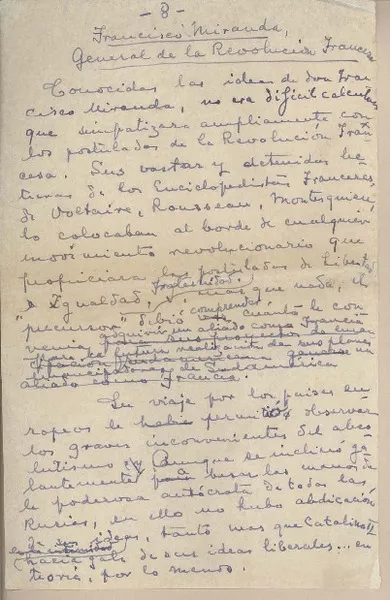 - 8 -
Francisco Miranda,
General de la Revolución Francesa
Conocidas las ideas de don Fran
cisco Miranda, no era dificil calcular
que simpatizara ampliamente con
los postulados de la Revolución Fran
cesa. Sus vastas y detenidas lec
turas de los Enciclopedistas Franceses,
de Voltaire, Rousseau, Montesquieu,
lo colocaban al borde de cualquier
movimiento revolucionario que
propiciara los postulados de Libertad
Fraternidad,
e Igualdad, y mas que nada, el
comprender
"precursor" debió ver cuanto le con
venia adquirir un aliado como Francia
para la futura realización de sus planes
de Sudamérica
aliado como Francia.
Su viaje por los paises eu
ropeos le permitió observar
los graves inconvenientes del abso
lutismo y Aunque se inclinó ga
lantemente para besar las manos de
la poderosa autócrata de todas las
Rusias, en ello no hubo abdicación
de sus ideas, tanto mas que Catalina II
hacia gala de sus ideas liberales... en
teoria, por lo menos.